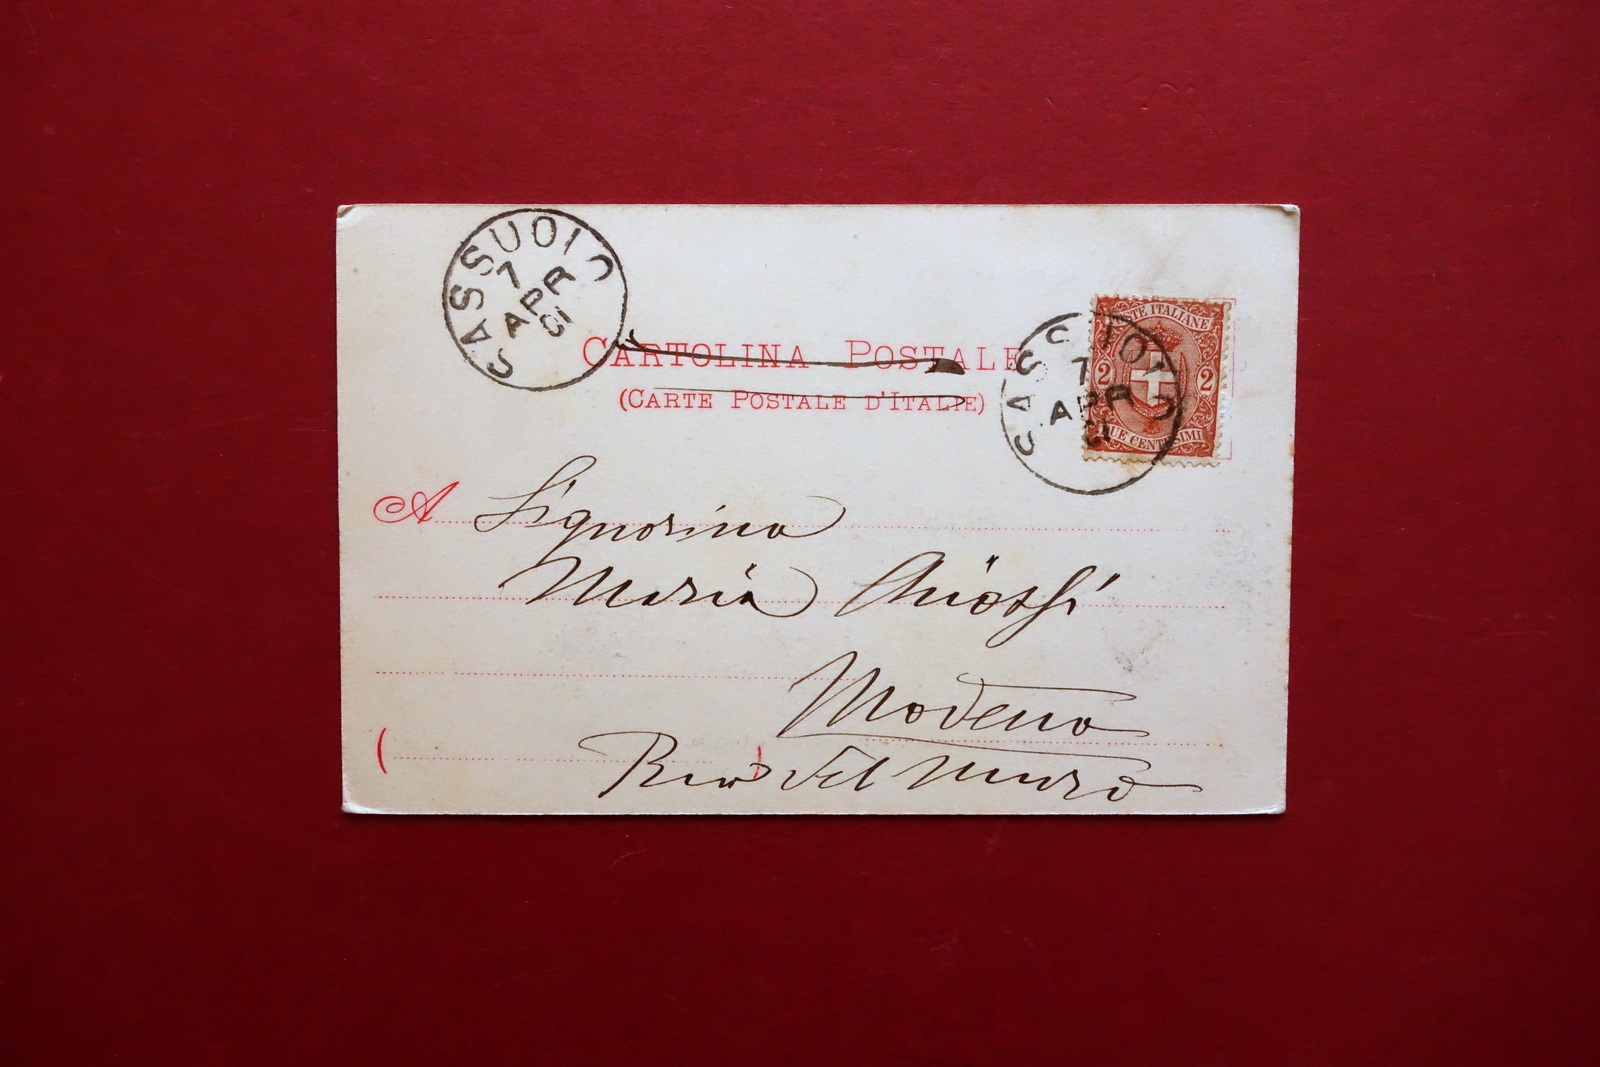 CASSUOLO
7
APR
01
CARTOLINA POSTALE
(CARTE POSTALE D'ITALIE)
POSTE ITALIANE
2 2
DUE CENTESIMI
CASSUOLO
7
APR
01
A Signorina
Maria Chiossi
Modena
Rua del muro